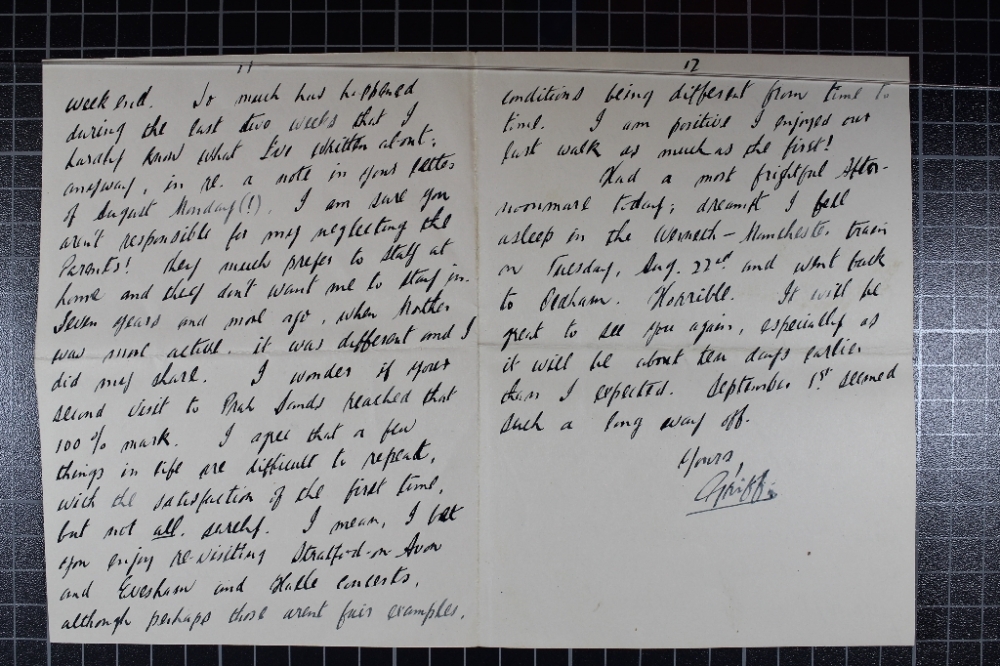 11
week end. So much has happened
during the last two weeks that I
hardly know what I've written about;
anyway, in re. a note in your letter
of August Monday(!). I am sure you
aren't responsible for my neglecting the
Parents! They much prefer to stay at
home and they don't want me to stay in.
Seven years and more ago, when Mother
was more active, it was different and I
did my share. I wonder if your
second visit to Prah Sands reached that
100% mark. I agree that a few
things in life are difficult to repeat,
with the satisfaction of the first time,
but not all, surely. I mean, I bet
you enjoy re-visiting Stratford-on-Avon
and Evesham and Halle concerts,
although perhaps those arent fair examples,
12
conditions being different from time to
time. I am positive I enjoyed our
last walk as much as the first!
Had a most frightful After-
noonmare today; dreamt I fell
asleep in the Werneth-Manchester train
on Tuesday, Aug. 22nd and went back
to Oldham. Horrible. It will be
great to see you again, especially as
it will be about ten days earlier
than I expected. September 1st seemed
such a long way off.
Yours,